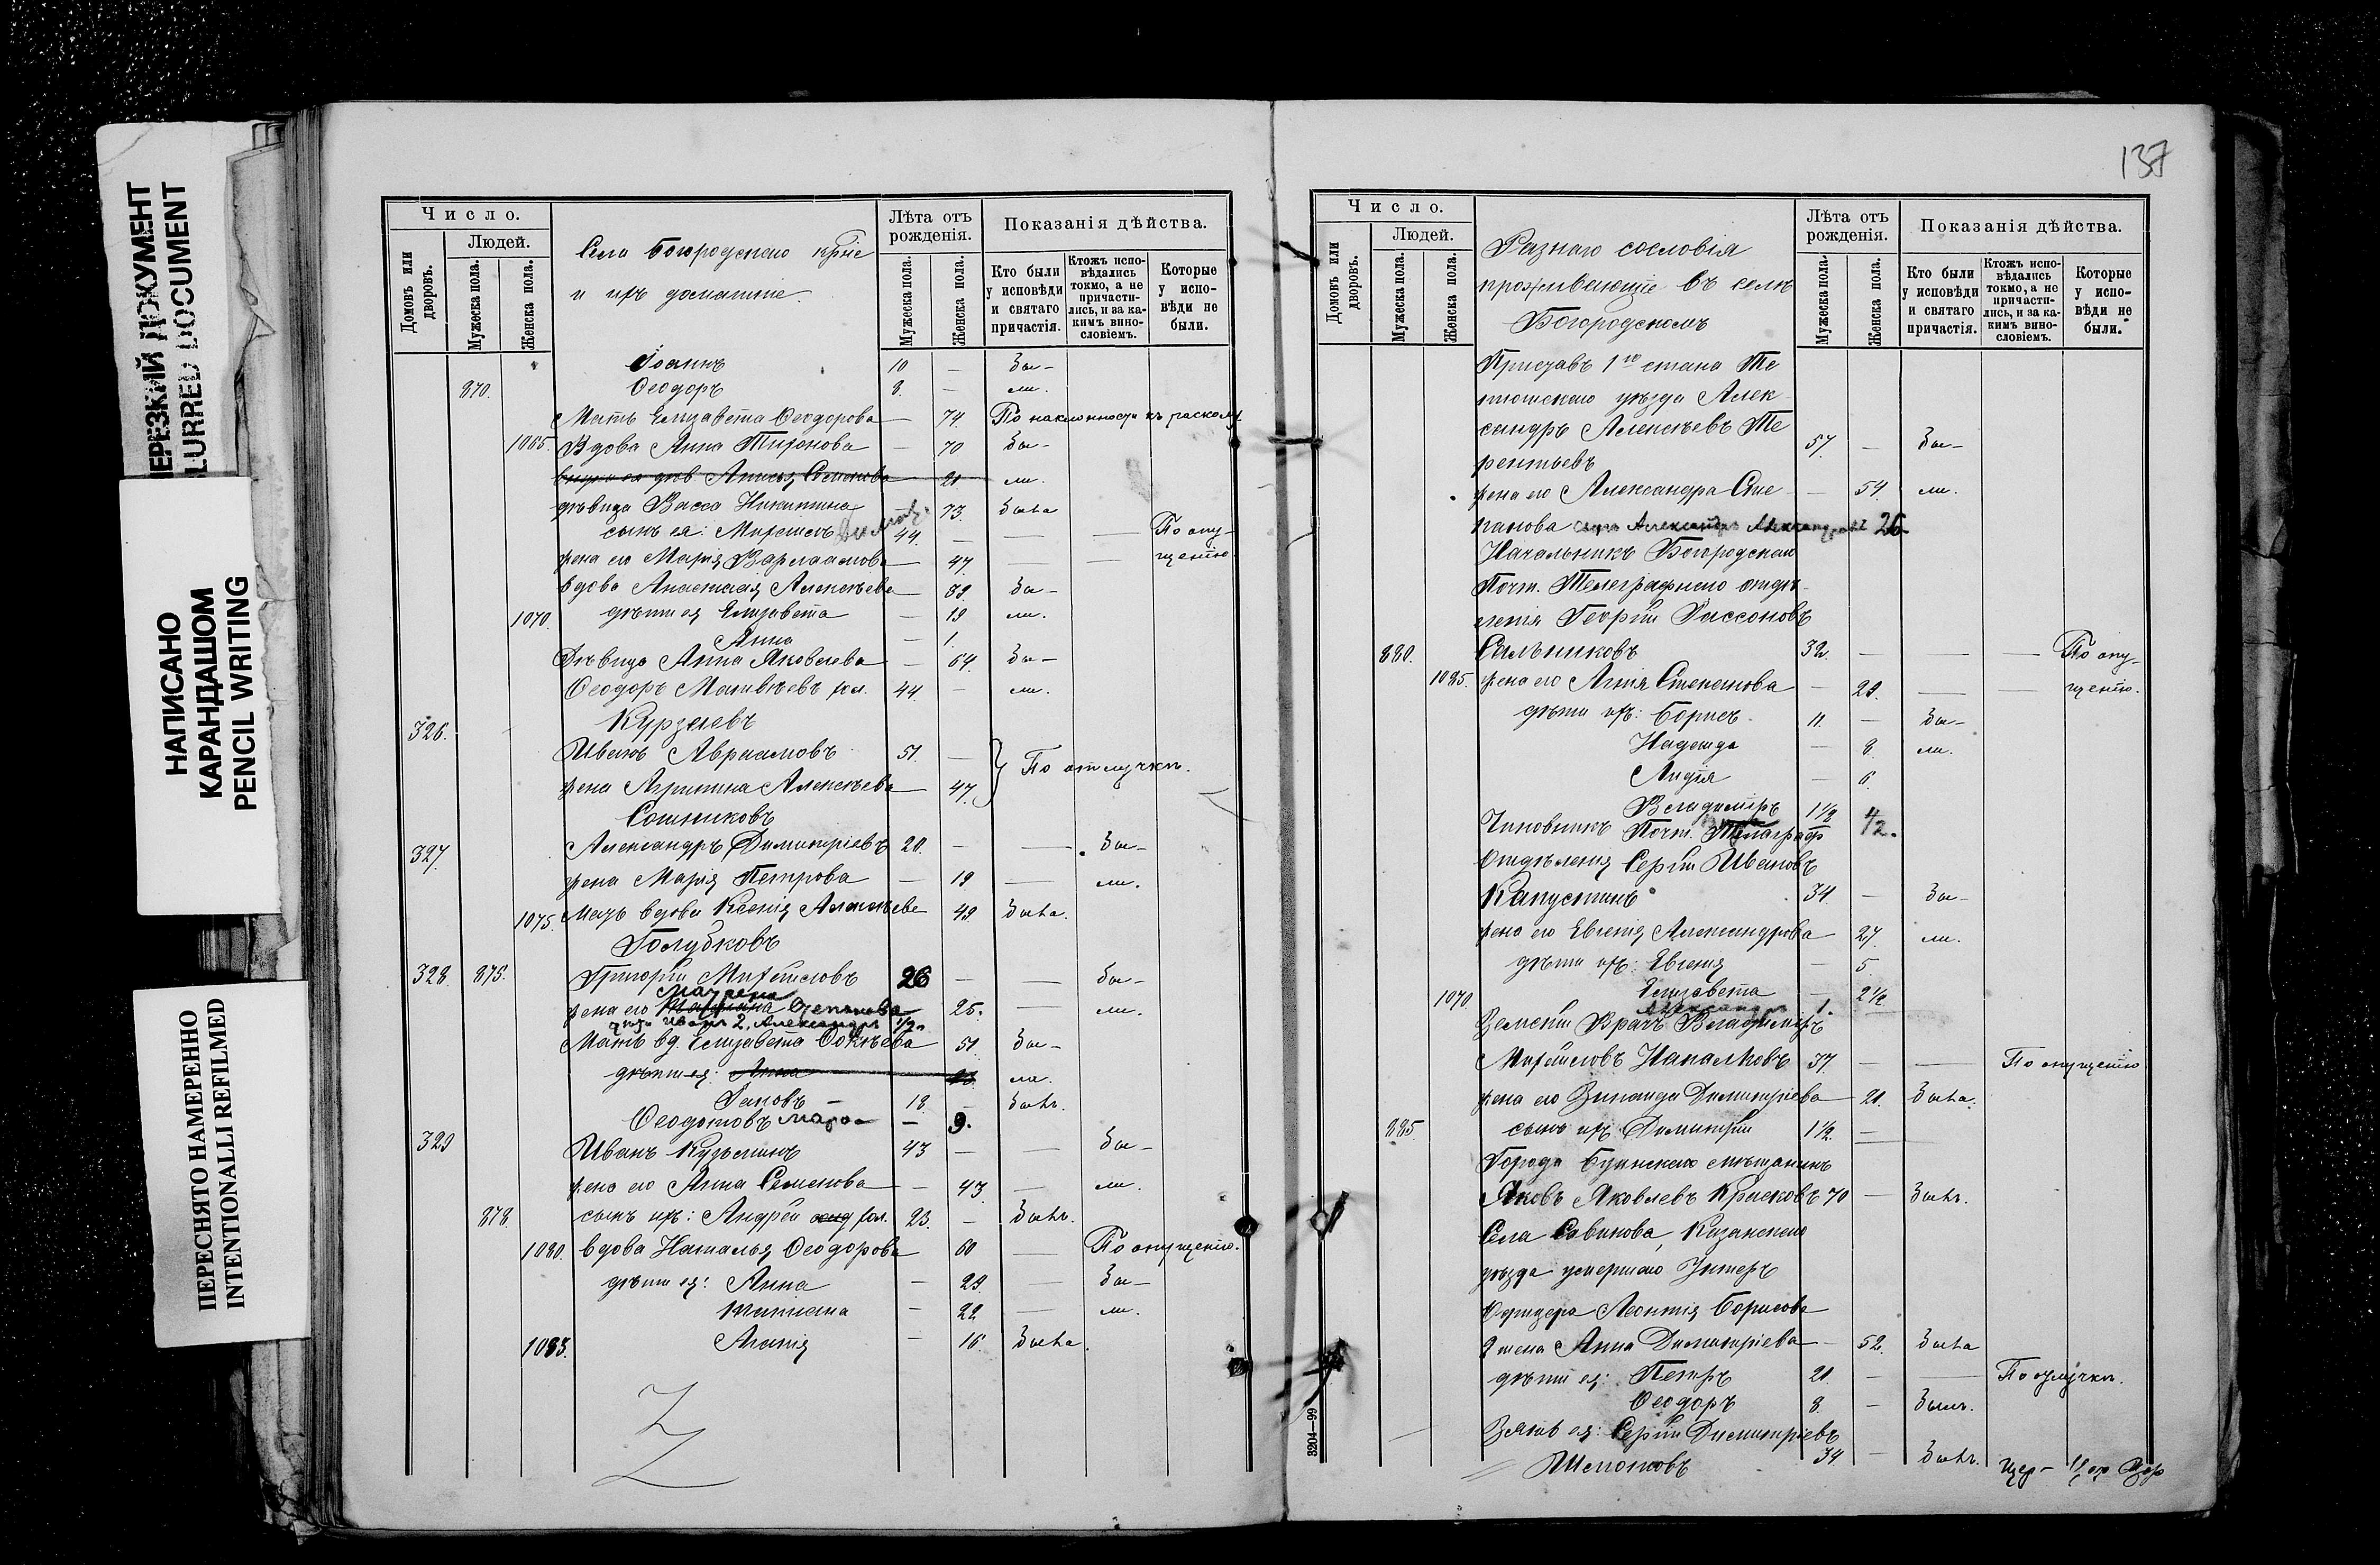 НЕРЕЗКИЙ ДОКУМЕНТ
BLURRED DOCUMENT
НАПИСАНО
КАРАНДАШОМ
PENCIL WRITING
ПЕРЕСНЯТО НАМЕРЕННО
INTENTIONALLI REFILMED
Число.
Людей.
Домовъ или дворовъ.
Мужеска пола.
Женска пола.
Села Богородскаго кр-не
и ихъ домашніе.
Лѣта отъ рожденія.
Мужеска пола.
Женска пола.
Показанія дѣйства.
Кто были у исповѣди и святаго причастія.
Ктожъ исповѣдались токмо, а не причастились, и за какимъ винословіемъ.
Которые у исповѣди не были.
Іоаннъ 10 — Бы-
870. Ѳеодоръ 8. — ли.
Мать Елизавета Ѳеодорова — 74. По наклонности къ расколу
1065. Вдова Анна — 70 Бы-
21 ли.
дѣвица Васса Никитина 73. Была
сынъ ея: Михаилъ 44. — — — По опу-
жена его Марія Варлаамова 47. — — щенію
вдова Анастасія Алексѣева — 39. Бы-
1070. дѣти ея Елизавета — 19 ли.
Анна — 1.
Дѣвица Анна Яковлева — 64 Бы-
Ѳеодоръ Матвѣевъ хол. 44. — ли.
326. Курзелевъ
Иванъ Авраамовъ 51. — По отлучкѣ.
жена Агрипина Алексѣева 47.
Сотниковъ
327. Александръ Димитріевъ 20. — — Бы-
жена Марія Петрова — 19 — ли.
1075. Мать вдова Ксенія Алексѣева 49. Была.
Голубковъ
328. 875. Григорій Михайловъ 26 — — Бы-
Мачрена
жена его Степанова 25. — ли.
дѣти Иванъ 2, Александръ 1/2.
Мать вд. Елизавета Ѳокѣева 51. Бы-
дѣти ея: Анна ли.
Іаковъ — 18. — Былъ.
Ѳеодотовъ — 9.
329 Иванъ Кузьминъ 43 — — Бы-
жена его Анна Семенова — 43. — ли.
878. сынъ ихъ: Андрей хол. 23. — Былъ.
1080. вдова Наталья Ѳеодорова 60 — По опущенію.
дѣти ея: Анна — 29. — Бы-
Татіана — 22 — ли.
1083. Агапія — 16. Была.
137
Число.
Людей.
Домовъ или дворовъ.
Мужеска пола.
Женска пола.
Разнаго сословія
проживающіе въ селѣ
Богородскомъ
Лѣта отъ рожденія.
Мужеска пола.
Женска пола.
Показанія дѣйства.
Кто были у исповѣди и святаго причастія.
Ктожъ исповѣдались токмо, а не причастились, и за какимъ винословіемъ.
Которые у исповѣди не были.
Приставъ 1го стана Те
тюшскаго уѣзда Алек-
сандръ Алексѣевъ Те
рентьевъ 57. — Бы-
жена его Александра Сте — 54. ли.
панова сынъ Александръ Александровъ 26
Начальникъ Богородскаго
Почт. Телеграфнаго отдѣ-
ленія Георгій
880. Сальниковъ 32. — — — По опу-
1085. жена его Агнія Степанова — 29. — — щенію.
дѣти ихъ: Борисъ 11. — Бы-
Надежда — 8. ли.
Лидія — 6.
Владиміръ 1 1/2
Чиновникъ Почт. Телеграф
Отдѣленія Сергій Ивановъ
Капустинъ 34 — Бы-
жена его Евгенія Александрова 27. ли.
дѣти ихъ: Евгенія — 5.
1070. Елизавета — 2 1/2
Александръ 1.
Земскій Врачъ Владиміръ
Михайловъ 37. — — По опущенію
жена его Зинаида Димитріева 21. Была.
885. сынъ ихъ Димитрій 1 1/2. —
Города Буинскаго мѣщанинъ
Яковъ Яковлевъ Крысковъ 70 — Былъ.
Села Савинова, Казанскаго
уѣзда умершаго Унтеръ
Офицера Леонтія Борисова
жена Анна Димитріева — 52. Была
дѣти ея: Петръ 21 — — По отлучкѣ.
Ѳеодоръ 8. — Былъ.
Зять ея: Сергій Димитріевъ
34. — Былъ.
8204—99